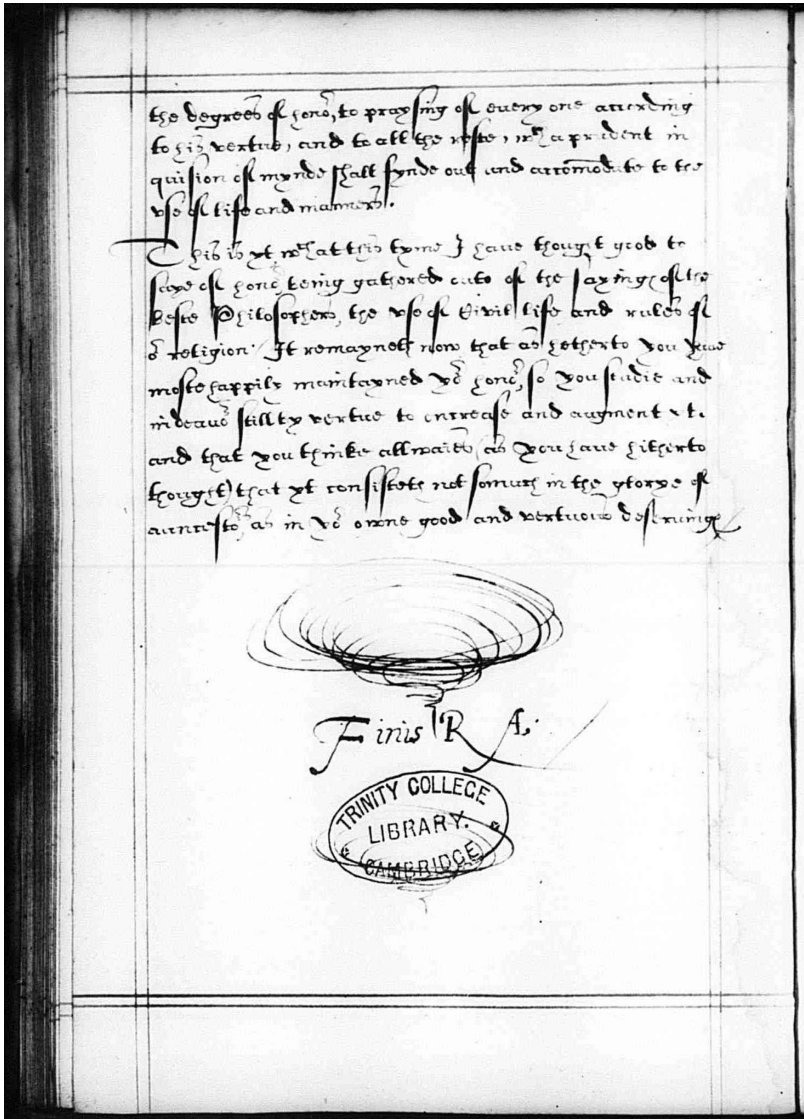 the degrees of hono^r, to praysing of every one according
to his vertue, and to all the reste, w^ch a prudent in
quision of mynde shall fynde out and accom̄odate to the
vse of life and manners.
This is yt w^ch at this tyme I have thought good to
saye of hono^r being gathered oute of the sayinges of the
beste Philosophers, the vse of Civil life and rules of
o^r religion. It remayneth now that as hetherto you have
moste happily maintayned yo^r hono^r, so you studie and
indeavo^r still by vertue to encrease and augment yt.
and that you thinke allwaies (as you have hitherto
thought) that yt consisteth not somuch in the glorye of
auncesto^rs as in yo^r owne good and vertuous deservinges
Finis R A.
TRINITY COLLEGE
LIBRARY.
CAMBRIDGE